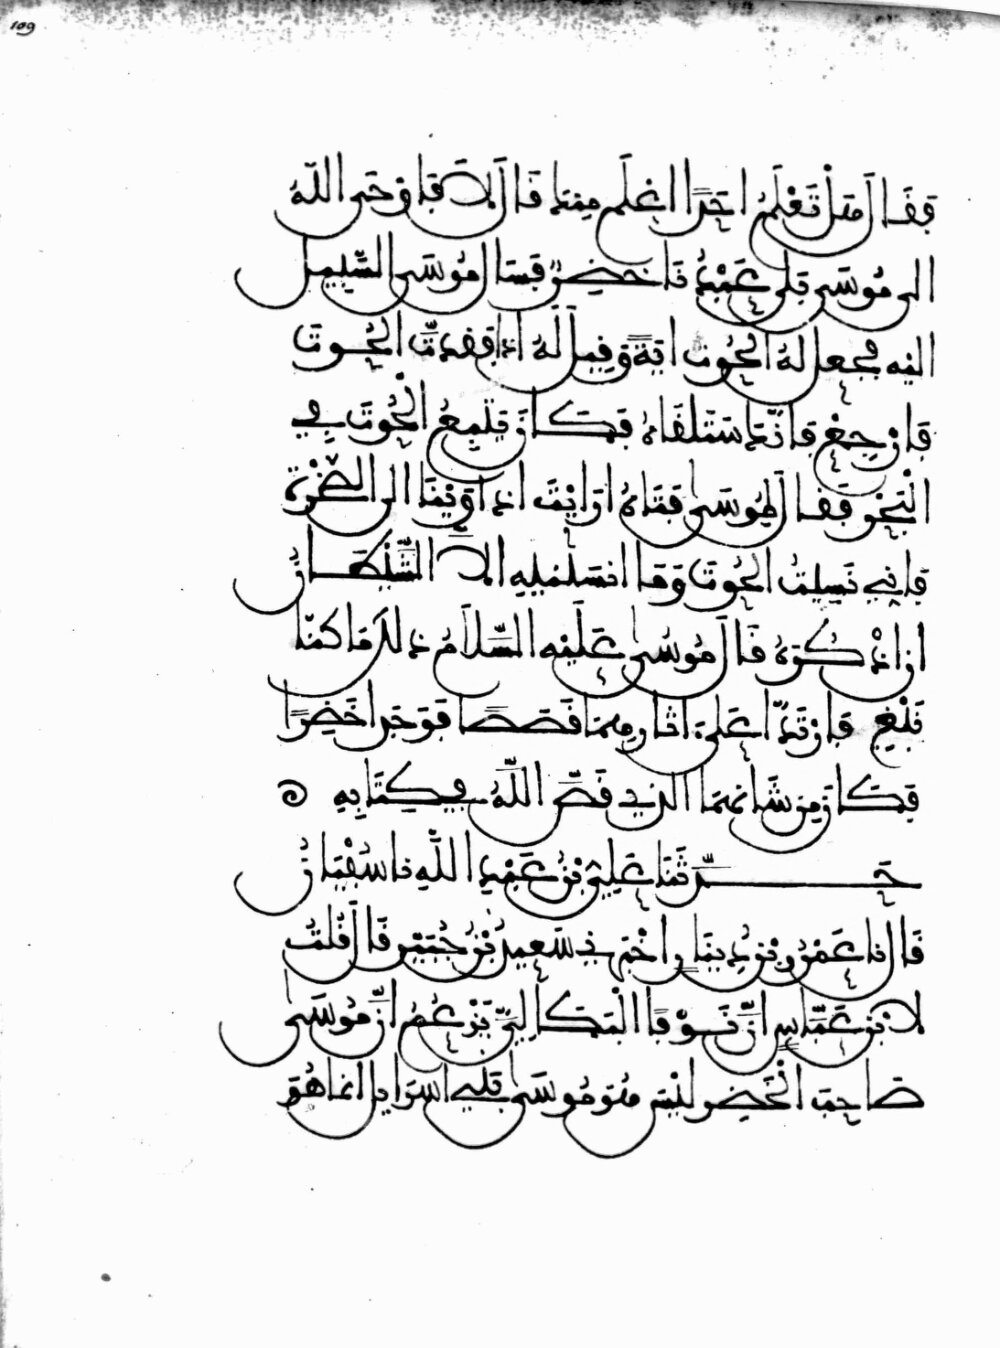 109
فقال هل تعلم احدا اعلم منك قال لا فاوحى الله
الى موسى بلى عبدنا خضر فسال موسى السبيل
اليه فجعل له الحوت اية وقيل له اذا فقدت الحوت
فارجع فانك ستلقاه فكان يتبع الحوت في
البحر فقال لموسى فتاه ارايت اذ اوينا الى الصخرة
فاني نسيت الحوت وما انسانيه الا الشيطان
ان اذكره قال موسى عليه السلام ذلك ما كنا
نبغ فارتدا على اثارهما قصصا فوجدا خضرا
فكان من شانهما الذي قص الله في كتابه
حدثنا علي بن عبد الله نا سفين
قال نا عمرو بن دينار اخبرني سعيد بن جبير قال قلت
لابن عباس ان نوفا البكالي يزعم ان موسى
صاحب الخضر ليس هو موسى بني اسرايل انما هو